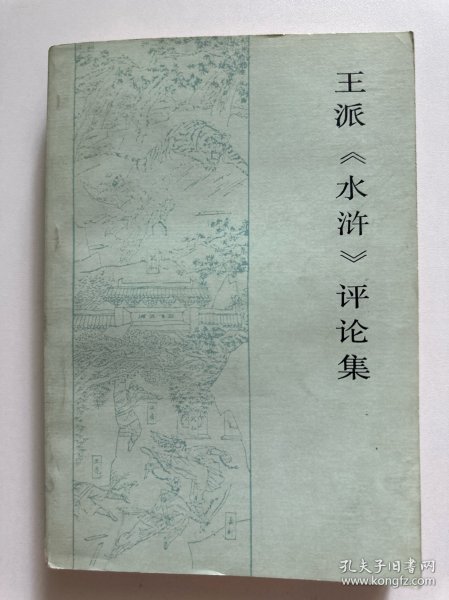 王派《水浒》评论集
孔夫子旧书网
www.kongfz.com